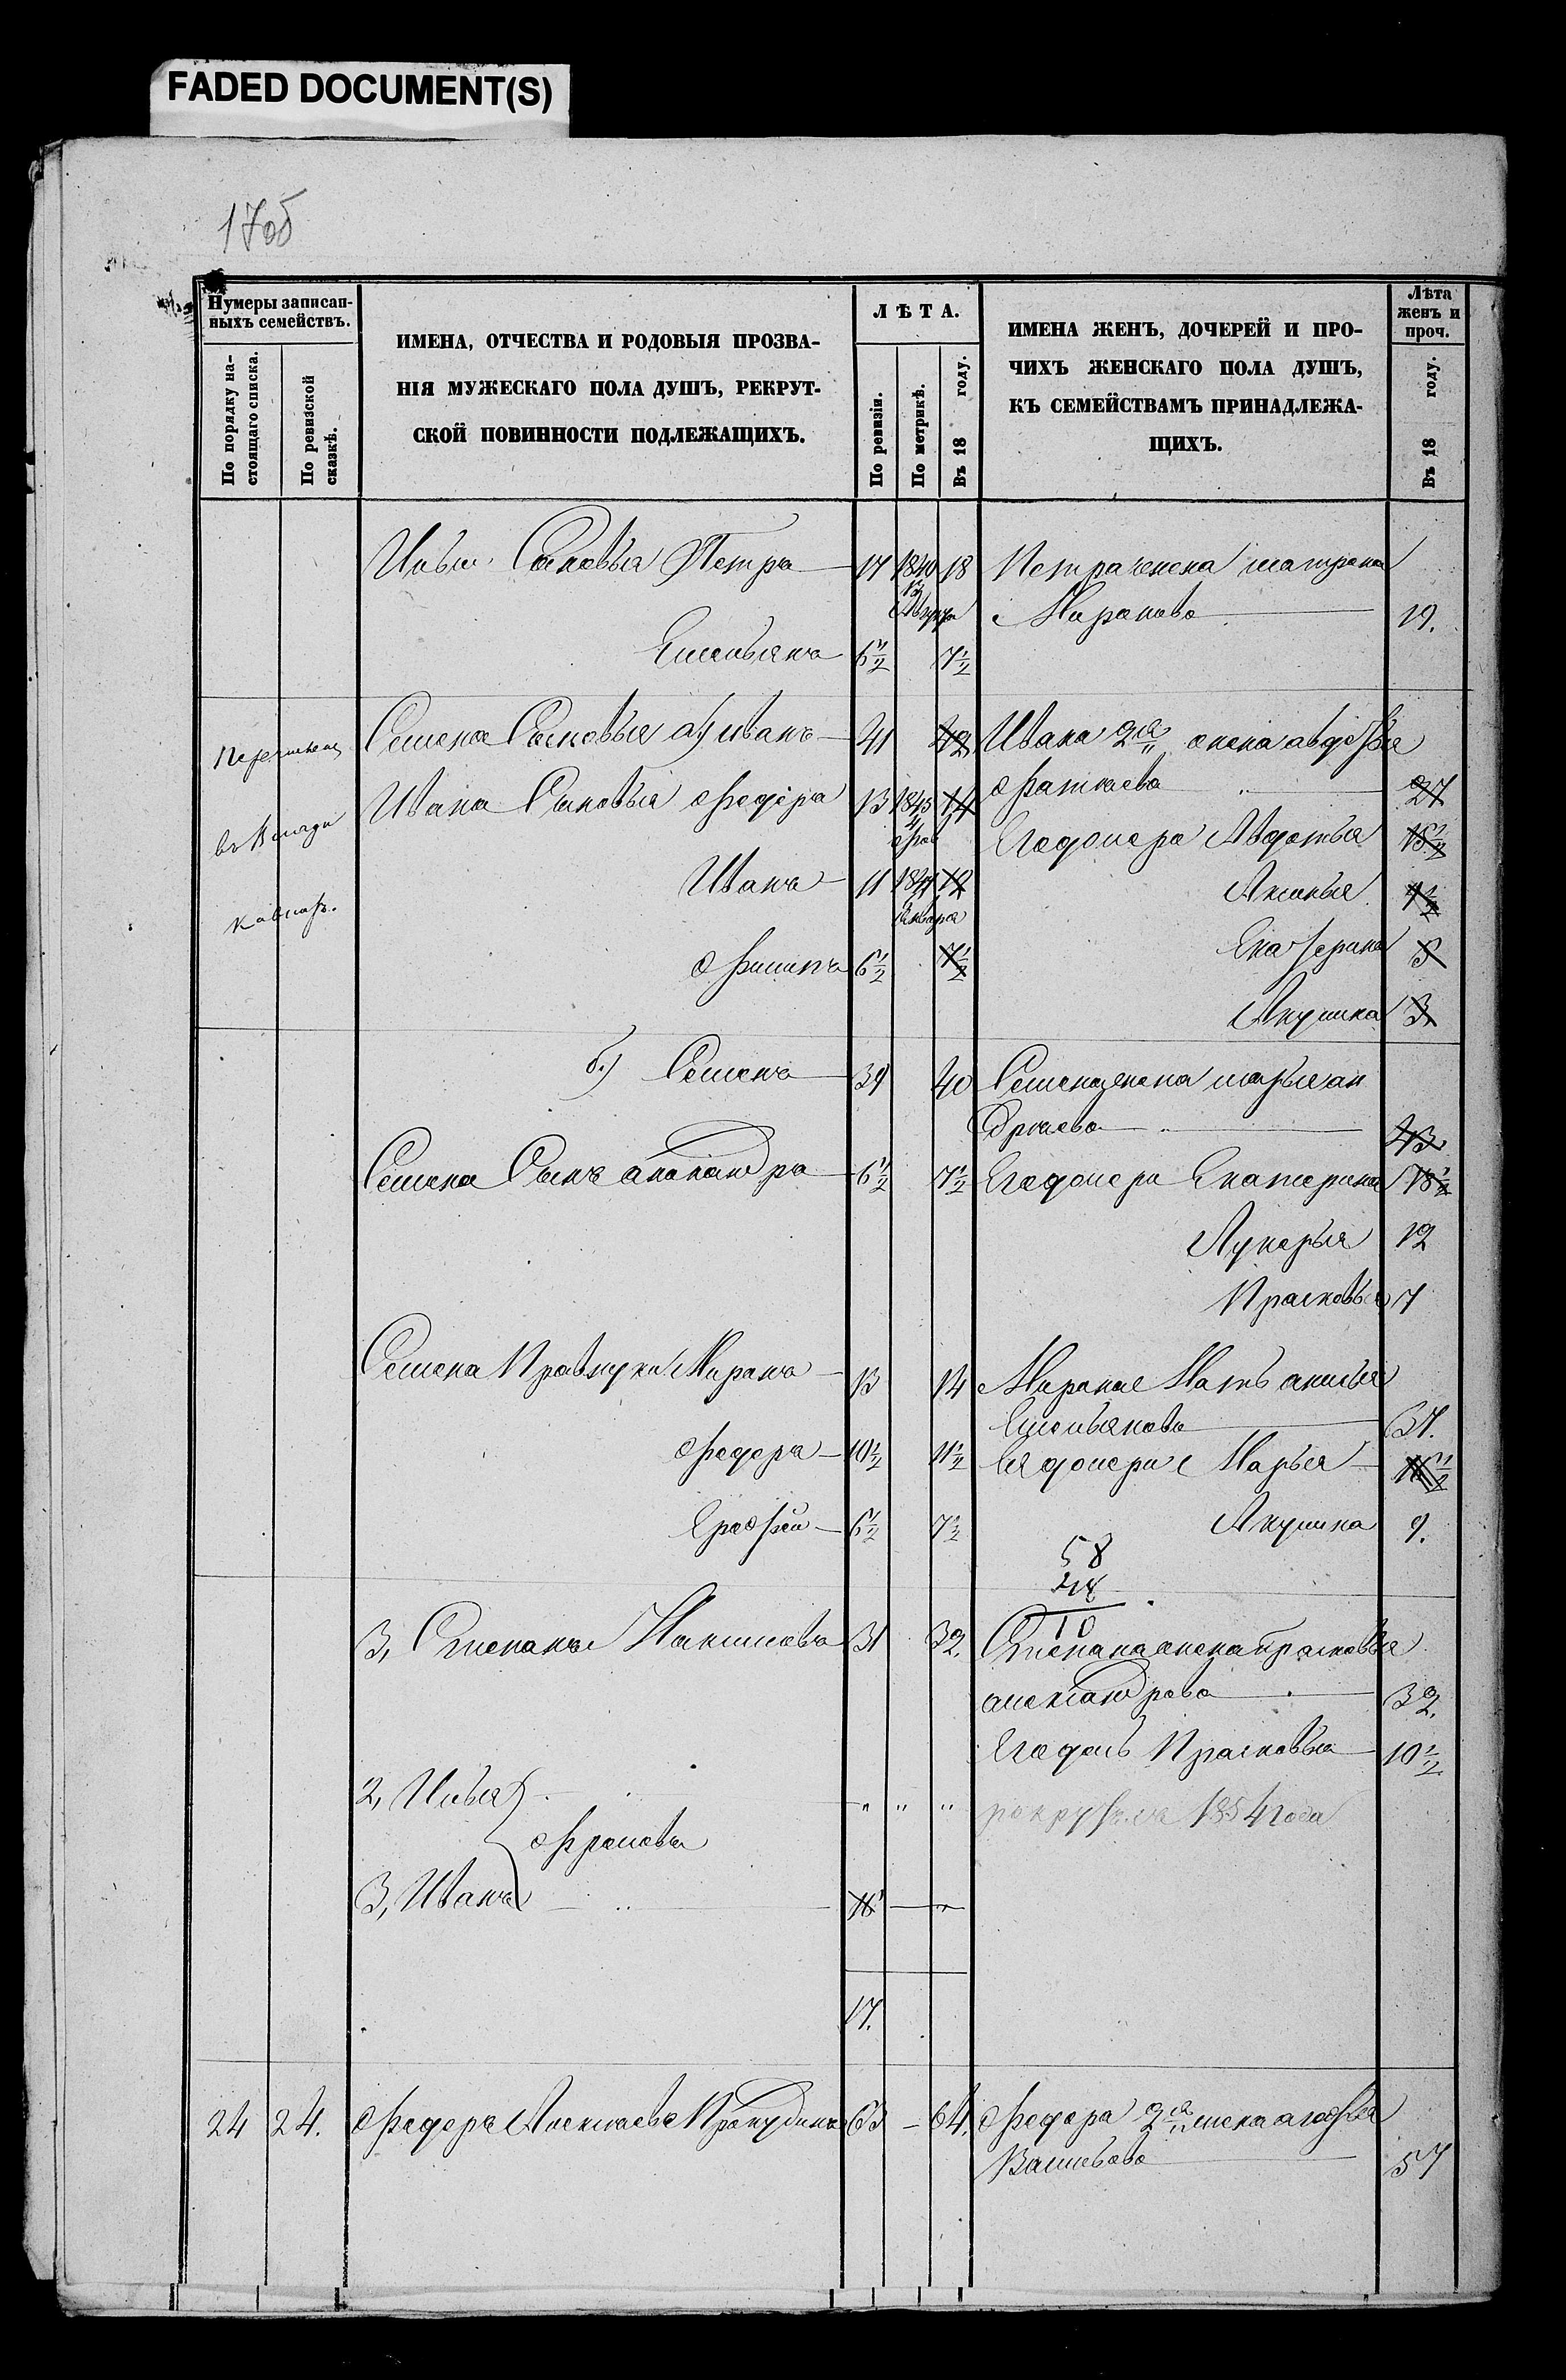 FADED DOCUMENT(S)
17об
Нумеры записан-
ныхъ семействъ.
По порядку на-
стоящаго списка.
По ревизской
сказкѣ.
ИМЕНА, ОТЧЕСТВА И РОДОВЫЯ ПРОЗВА-
НІЯ МУЖЕСКАГО ПОЛА ДУШЪ, РЕКРУТ-
СКОЙ ПОВИННОСТИ ПОДЛЕЖАЩИХЪ.
ЛѢТА.
По ревизіи.
По метрикѣ.
Въ 18 году.
ИМЕНА ЖЕНЪ, ДОЧЕРЕЙ И ПРО-
ЧИХЪ ЖЕНСКАГО ПОЛА ДУШЪ,
КЪ СЕМЕЙСТВАМЪ ПРИНАДЛЕЖА-
ЩИХЪ.
Лѣта
женъ и
проч.
Въ 18 году.
Ильи Сыновья Петръ 17 1840 18 Петра жена матрена
Миранова 19.
Емельянъ 6½ 7½
Семена Сыновья а) иванъ 41 42 Ивана 2я жена авдотья
Фаткаева 27
Ивана Сыновья Федоръ 13 1845 14
Его дочери Авдотья 15½
Иванъ 11 1847 12 Аксинья
Января
Филипъ 6½ 7½ Екатерина
Акулина 3
б.) Семенъ 39 40 Семена жена марья ан
дреева 43
Семена Сынъ александръ 6½ 7½ Его дочери Екатерина 18½
Лукерья 12
Прасковья 7
Семена Правнуки Миранъ 13 14 Мирана Мать
Емельянова 37.
Федоръ 10½ 11½ Ея дочери Марья
Ерофей 6½ 7½ Акулина 9.
58
48
10
3, Степанъ Максимовъ 31 32. Степана жена прасковья
александрова 32.
Его дочь Прасковья 10½
2, Илья " " " 1854 года
Фролова
3, Иванъ
17.
24 24. Федоръ Алексѣевъ Прокудинъ 63 – 64. Федора 2я жена агафья
Васильева 57